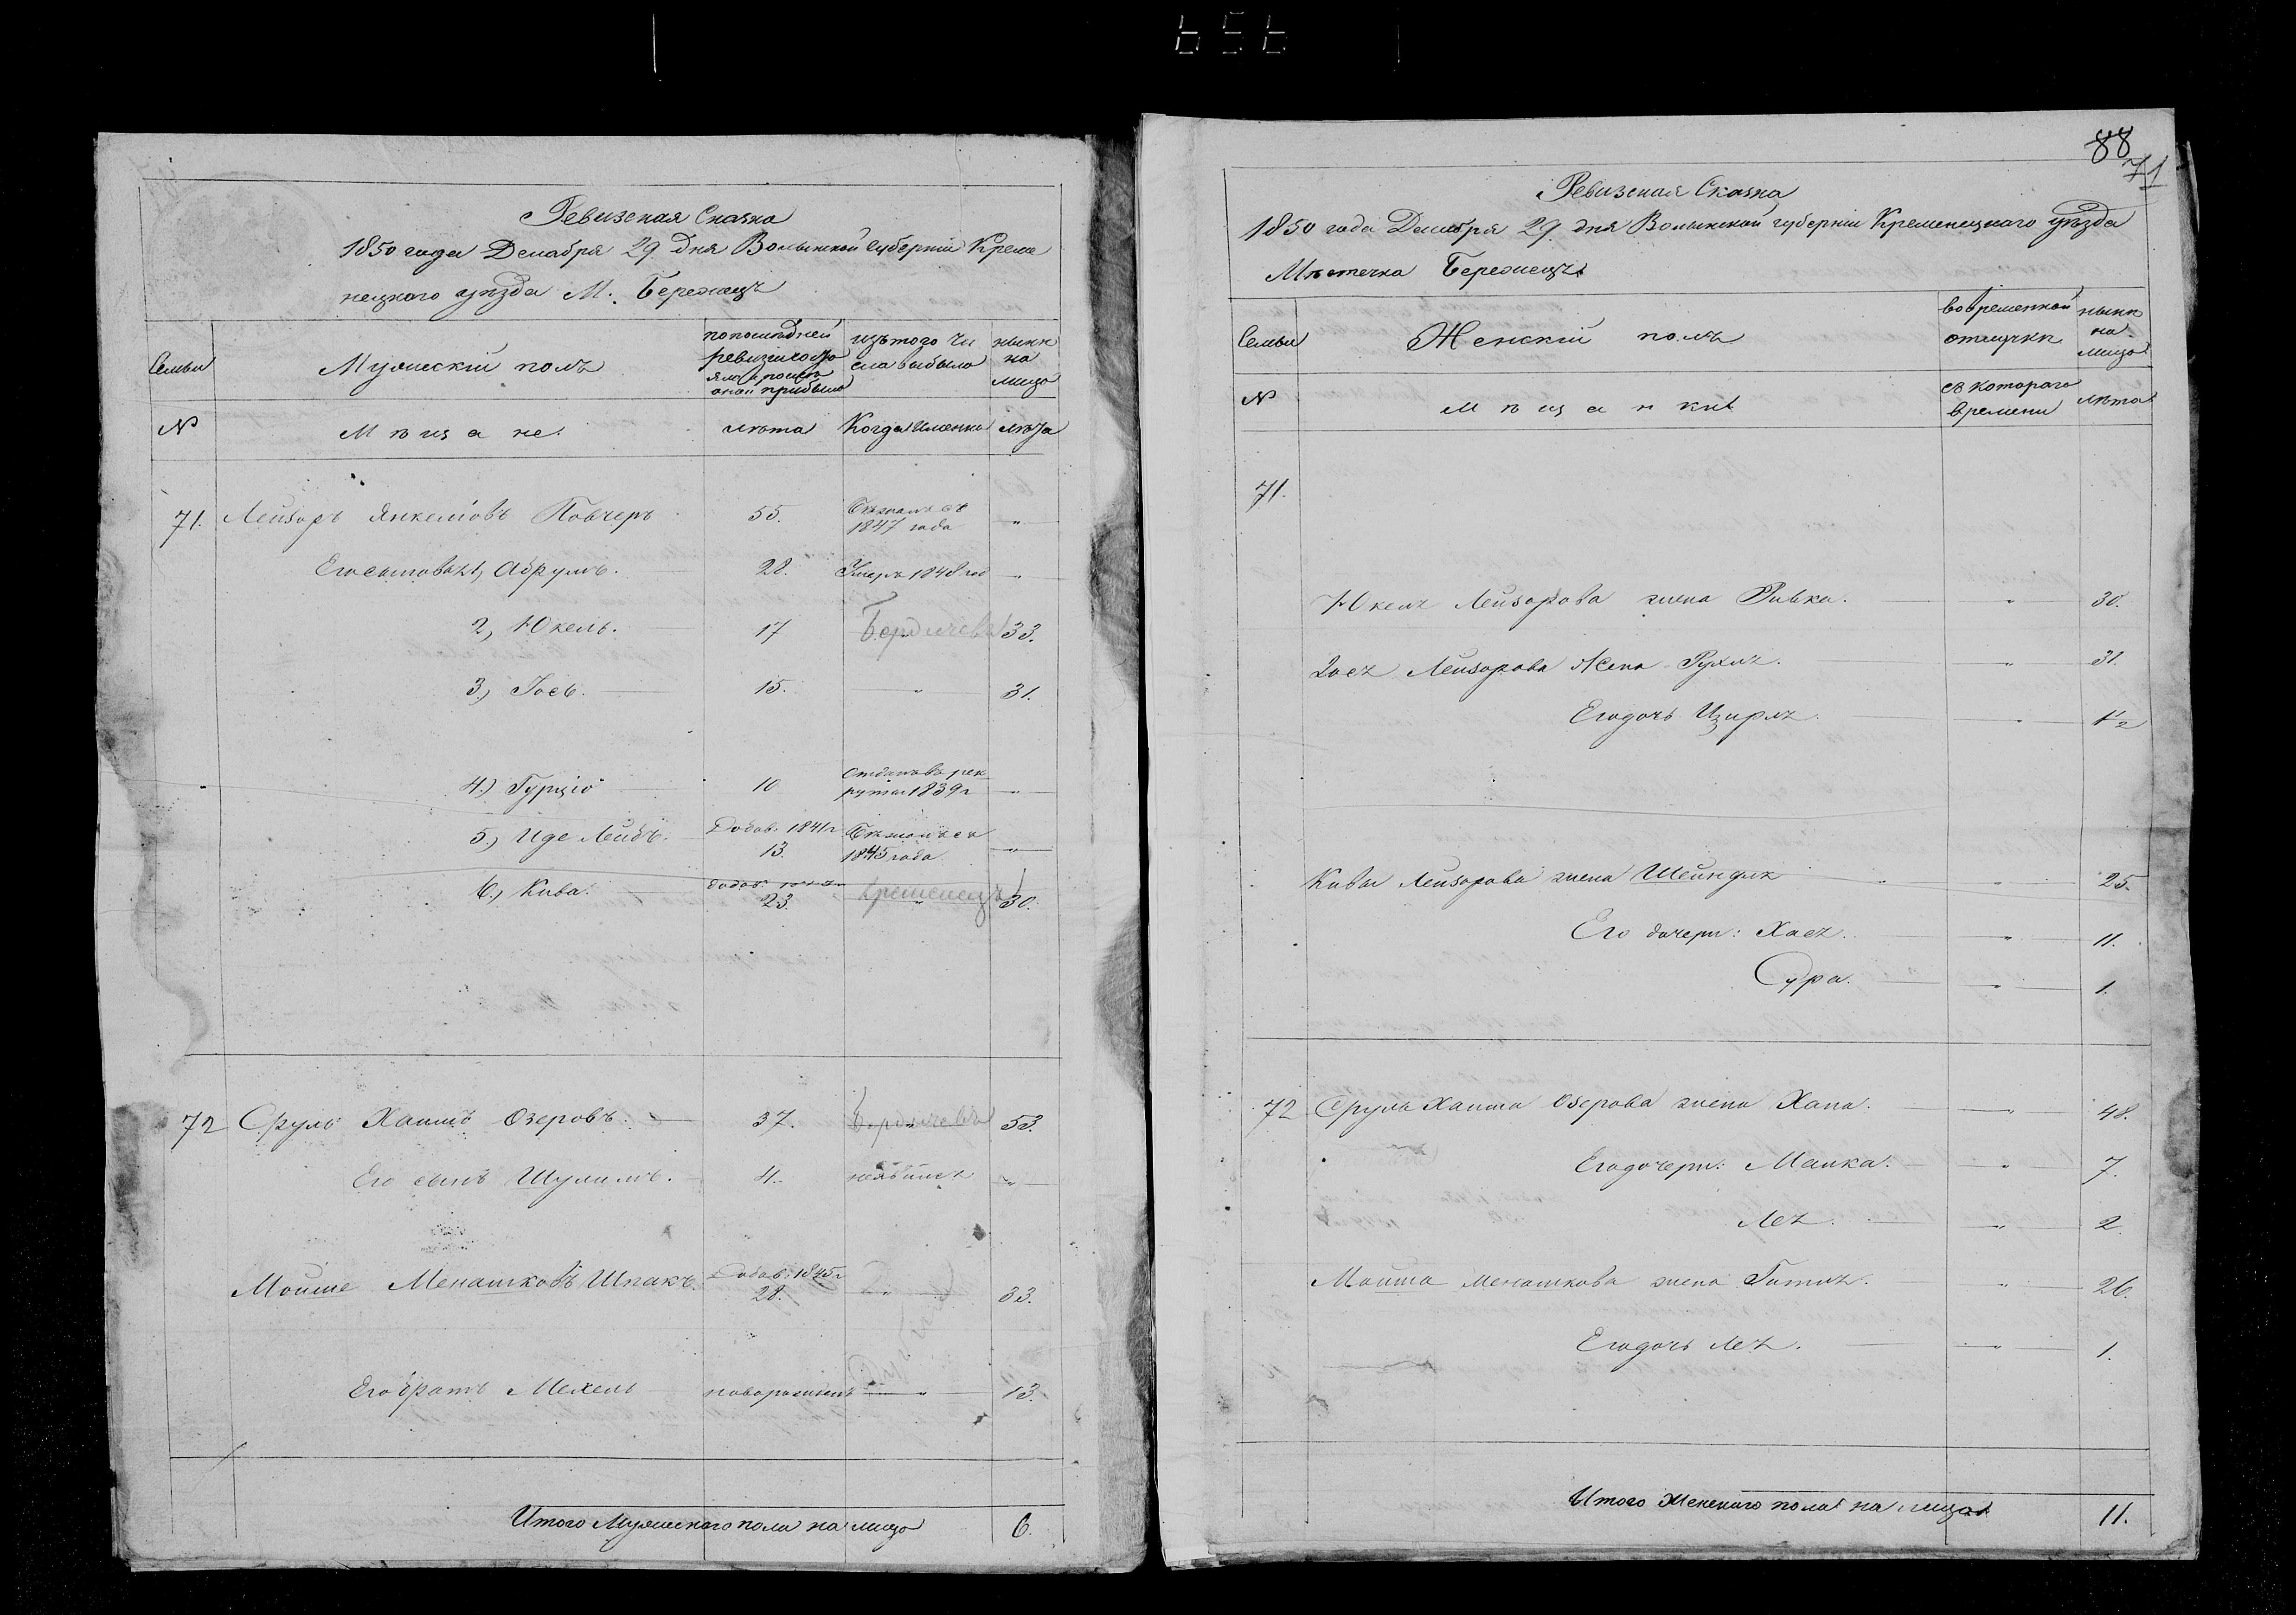 Ревизская Сказка
1850 года Декабря 29 дня Волынской губерніи Креме
нецкого уѣзда М. Бережецъ
Семьи
Мужескій полъ
по последней
ревизіи состо
яло и после
оной прибыло
изъ того чи
сла выбыло
нынѣ
на
лицо
№
Мѣщане.
лѣта
Когда именно
лѣта
71. Лейзоръ Янкелювъ Повчеръ 55. Бѣжалъ съ
1847 года „
Его сыновья 1, Абрумъ. 28. Умеръ 1848 год „
2, Юкель. 17 Бердичевъ 33.
3, Іось. 15. „ 31.
4.) Гурціо 10 Отданъ въ рек
руты 1839 г „
5.) Иде Лейбъ. Добав. 1841 г
13. Бѣжалъ съ
1845 года „
6, Кива. добав.
23. Кременецъ 30.
72 Сруль Хаимъ Озеровъ. 37. Бердичевъ 53.
Его сынъ Шулимъ. 4. „
Мойше Менашковъ Шпакъ. Добав. 1845 г
28. „ 33.
Его братъ Мехель новорожденъ „ 13.
Итого Мужескаго пола на лицо 6.
88
71
Ревизская Сказка
1850 года Декабря 29 дня Волынской губерніи Кременецкаго уѣзда
Мѣстечка Бережецъ
Семьи
Женскій полъ
во временной
отлучкѣ
нынѣ
на
лицо
№
Мѣщанки
съ котораго
времени
лѣта
71.
Юкеля Лейзорова жена Ривка. „ 30.
Іося Лейзорова жена Рухля. „ 31.
Его дочь Цирля. „ 1/2
Кивы Лейзорова жена Шейндля „ 25.
Его дочери: Хася. „ 11.
Сура. „ 1.
72 Сруля Хаима Озерова жена Хана. „ 48.
Его дочери: Малка. „ 7.
Лея. „ 2
Мойша Менашкова жена Гитля. „ 26.
Его дочь Лея. „ 1.
Итого Женскаго пола на лицо 11.